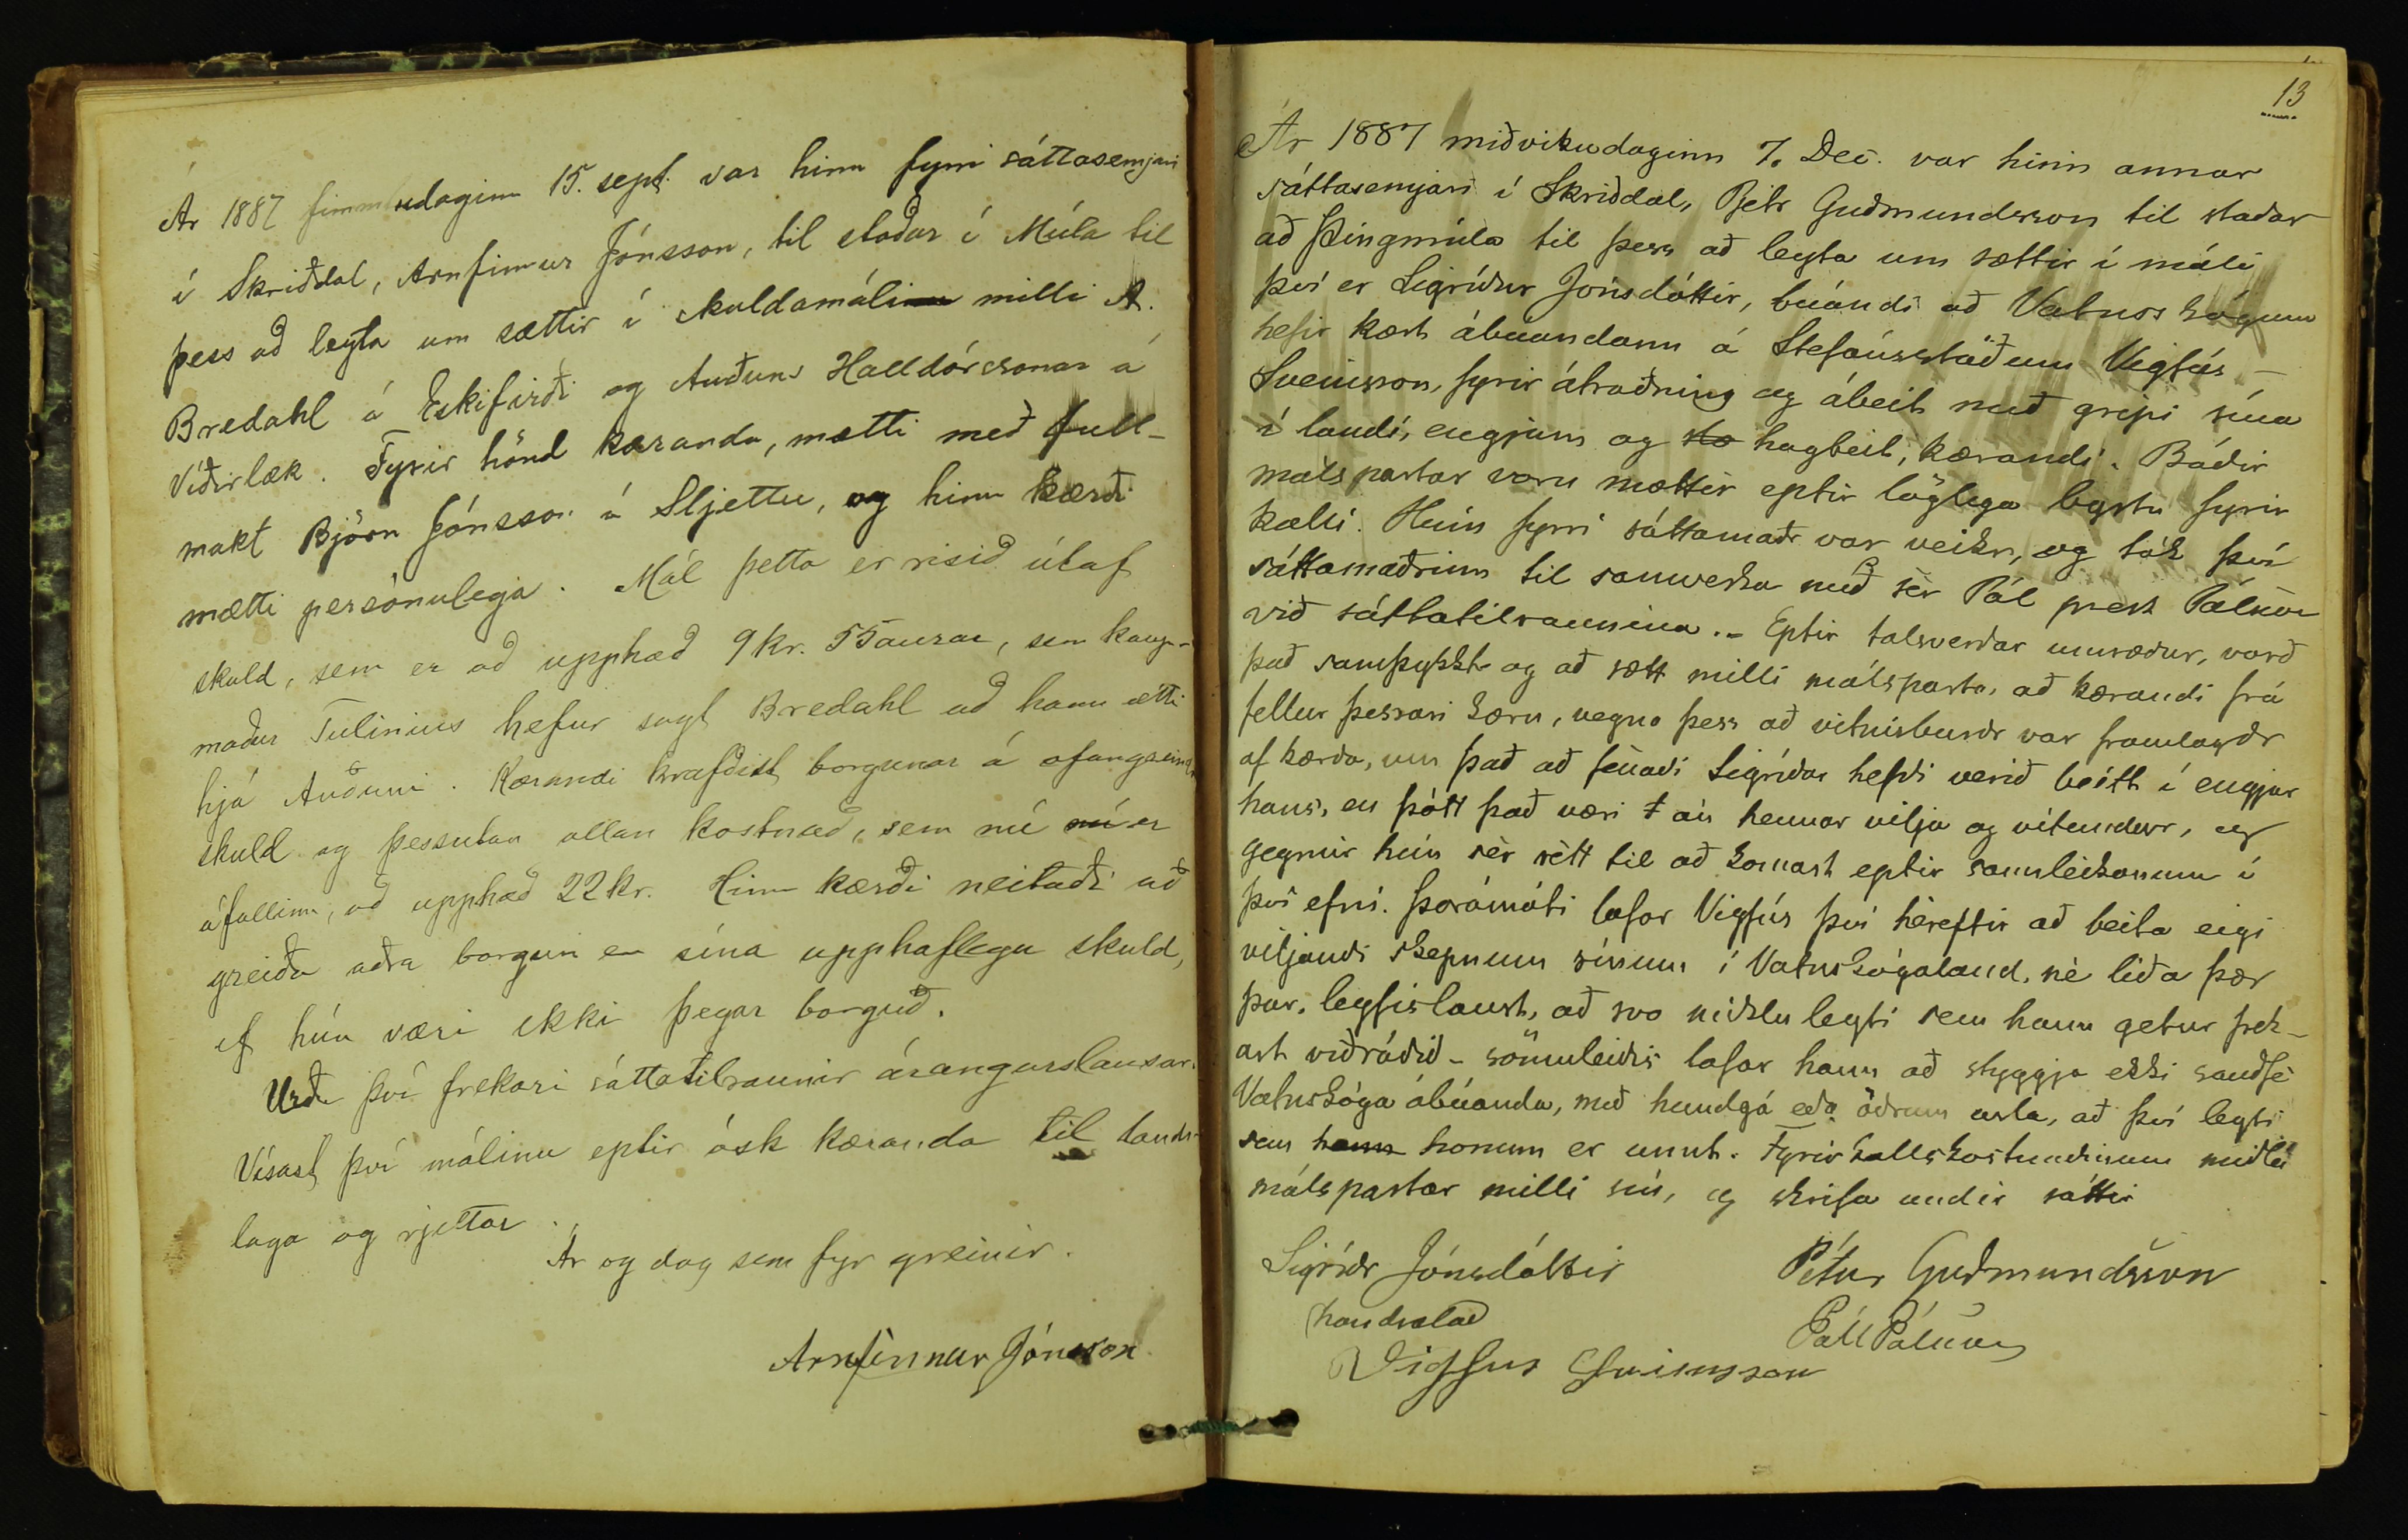 Ár 1887 fimmtudaginn 15. sept. var hinn fyrri sáttasemjari
í Skriðdal, Arnfinnur Jónsson, til staðar í Múla til
þess að leyta um sættir í skuldamáli milli A.
Bredahl á Eskifirði og Auðuns Halldórssonar á
Víðirlæk. Fyrir hönd kæranda, mætti með full-
makt Björn Jónsson á Sljettu, og hinn kærði
mætti persónulega. Mál þetta er risið útaf
skuld, sem er að upphæð 9 kr. 55 aurar, sem kaup-
maður Tulinius hefur sagt Bredahl að hann ætti
hjá Auðuni. Kærandi krafðist borgunar á ofangreindri
skuld og þessutan allan kostnað, sem nú nú er
áfallinn, að upphæð 22 kr. Hinn kærði neitaði að
greiða aðra borgun en sína upphaflegu skuld,
ef hún væri ekki þegar borguð.
Urðu því frekari sáttatilraunir árangurslausar.
Vísast því málinu eptir ósk kæranda til lands-
laga og rjettar.
Ár og dag sem fyr greinir.
Arnfinnur Jónsson
13
Ár 1887 miðvikudaginn 7. Dec. var hinn annar
sáttasemjari í Skriðdal, Pjetr Guðmundsson til staðar
að Þingmúla til þess að leyta um sættir í máli
því er Sigríður Jónsdóttir, búandi að Vatnsskógum
hefir kært ábúandann á Stefánsstöðum Vigfús
Sveinsson, fyrir átroðning og ábeit með gripi sína
í landi, engjum og sto hagbeit, kærandi. Báðir
málspartar voru mættir eptir löglega byrtu fyrir
kalli. Hinn fyrri sáttamaðr var veikr, og tók því
sáttamaðrinn til samverka með sér Pál prest Pálsson
við sáttatilraunina. - Eptir talsverðar umræður, varð
það samþykkt og að sætt milli málsparta, að kærandi frá
fellur þessari kæru, vegna þess að vitnisburðr var framlagðr
af kærða, um það að fénaði Sigríðar hefði verið beitt í engjar
hans, en þótt það væri án hennar vilja og vitundur, og
gegnir hún sér rétt til að komast eptir sannleikanum í
því efni. Þarámóti lofar Vigfús því héreftir að beita eigi
viljandi skepnum sínum í Vatnskógaland, né líða þær
þar, leyfislaust, að svo miklu leyti sem hann getur frek-
ast viðráðið - sömuleiðis lofar hann að styggja ekki sauðfé
Vatnskóga ábúanda, með hundgá eða öðrum usla, að því leyti
sem hann honum er unnt. Fyrirkallskostnaðinum miðla
málspartar milli sín, og skrifa undir sáttir
Sigríðr Jónsdóttir Pétur Guðmundsson
handsalað Páll Pálsson
Vigfus Sveinsson